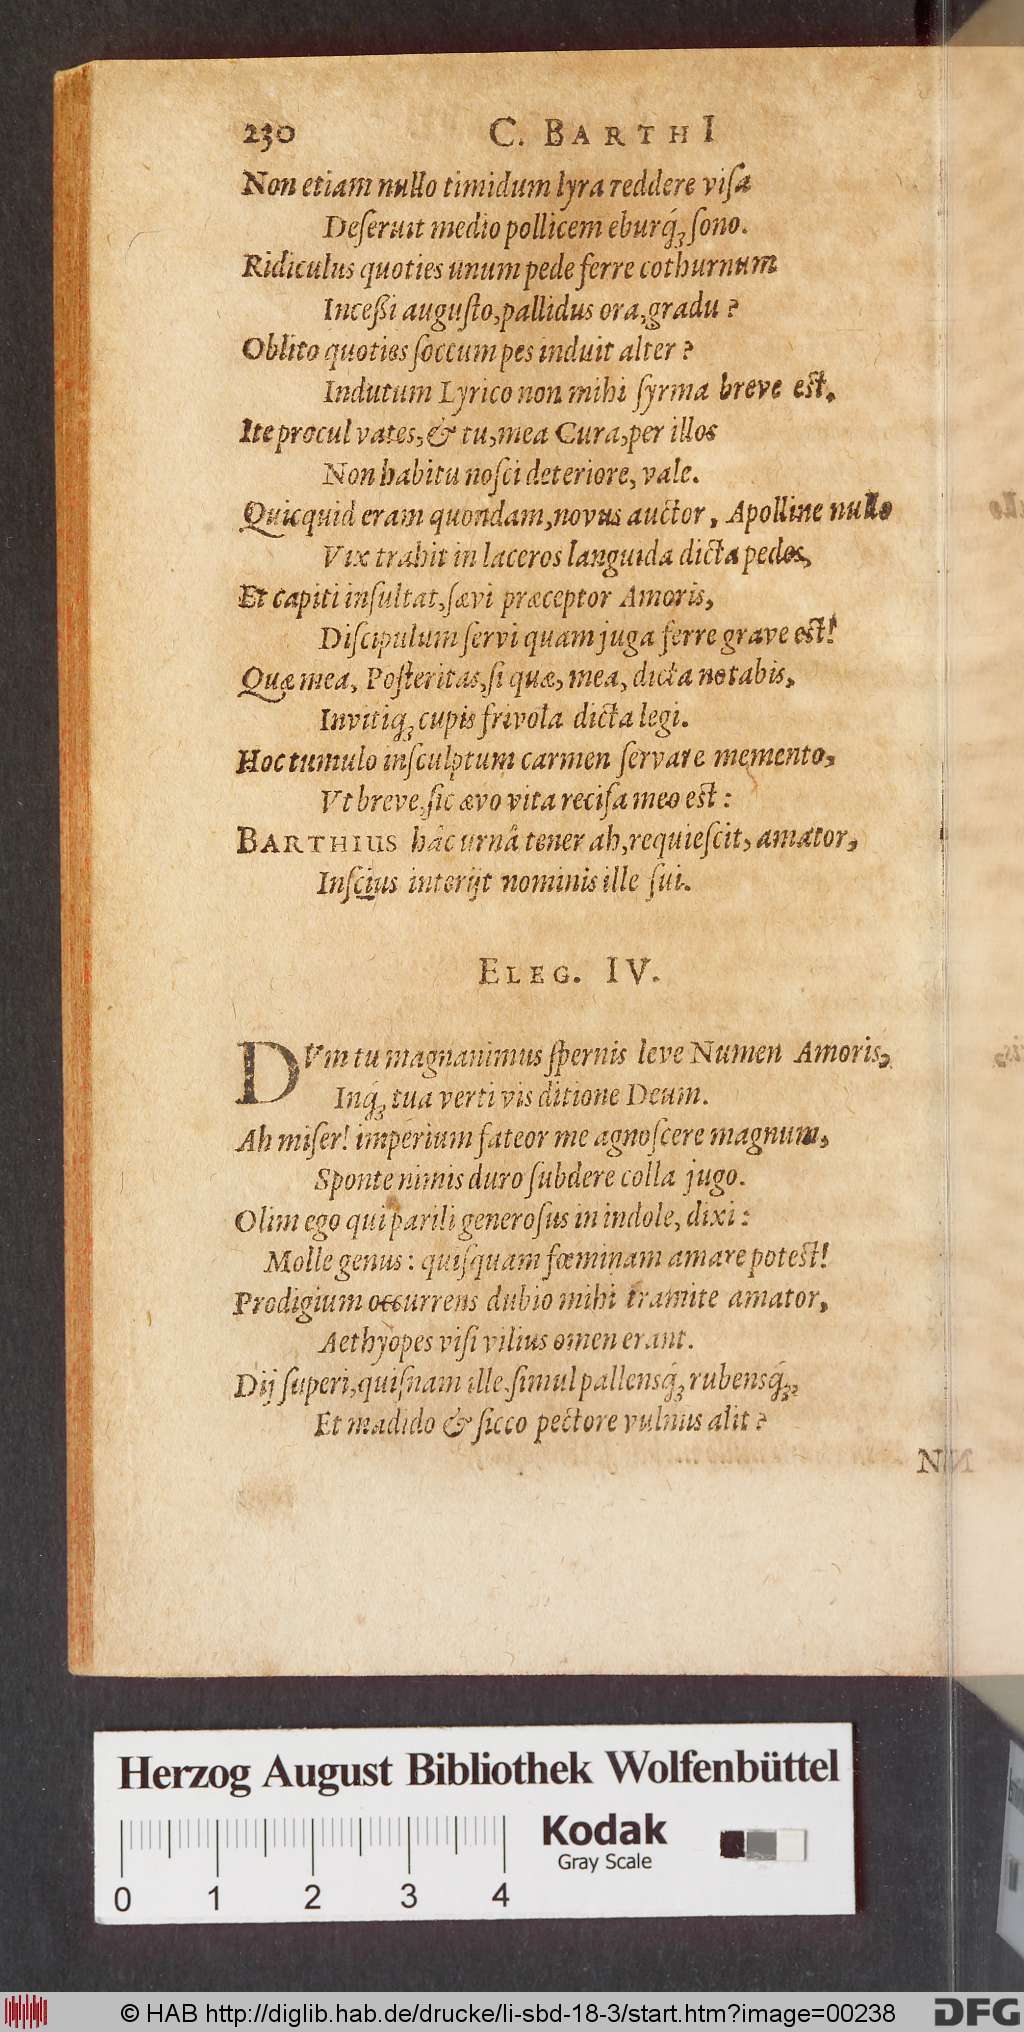 230 C. BARTHI
Non etiam nullo timidum lyra reddere visa
Deseruit medio pollicem eburq́ꝫ sono.
Ridiculus quoties unum pede ferre cothurnum
Incessi augusto, pallidus ora, gradu?
Oblito quoties soccum pes induit alter?
Indutum Lyrico non mihi syrma breve est.
Ite procul vates, & tu, mea Cura, per illos
Non habitu nosci deteriore, vale.
Quicquid eram quondam, novus auctor, Apolline nullo
Vix trahit in laceros languida dicta pedes,
Et capiti insultat, sævi præceptor Amoris,
Discipulum servi quam juga ferre grave est!
Quæ mea, Posteritas, si quæ, mea, dicta notabis,
Invitiq́ꝫ cupis frivola dicta legi.
Hoc tumulo insculptum carmen servare memento,
Vt breve, sic ævo vita recisa meo est:
BARTHIUS hâc urnâ tener ah, requiescit, amator,
Inscius interijt nominis ille sui.
ELEG. IV.
DVm tu magnanimus spernis leve Numen Amoris,
Inq́ꝫ tua verti vis ditione Deum.
Ah miser! imperium fateor me agnoscere magnum,
Sponte nimis duro subdere colla jugo.
Olim ego qui parili generosus in indole, dixi:
Molle genus: quisquam fœminam amare potest!
Prodigium occurrens dubio mihi tramite amator,
Aethyopes visi vilius omen erant.
Dij superi, quisnam ille simul pallensq́ꝫ rubensq́ꝫ,
Et madido & sicco pectore vulnus alit?
Herzog August Bibliothek Wolfenbüttel
Kodak
Gray Scale
0 1 2 3 4
© HAB http://diglib.hab.de/drucke/li-sbd-18-3/start.htm?image=00238
DFG